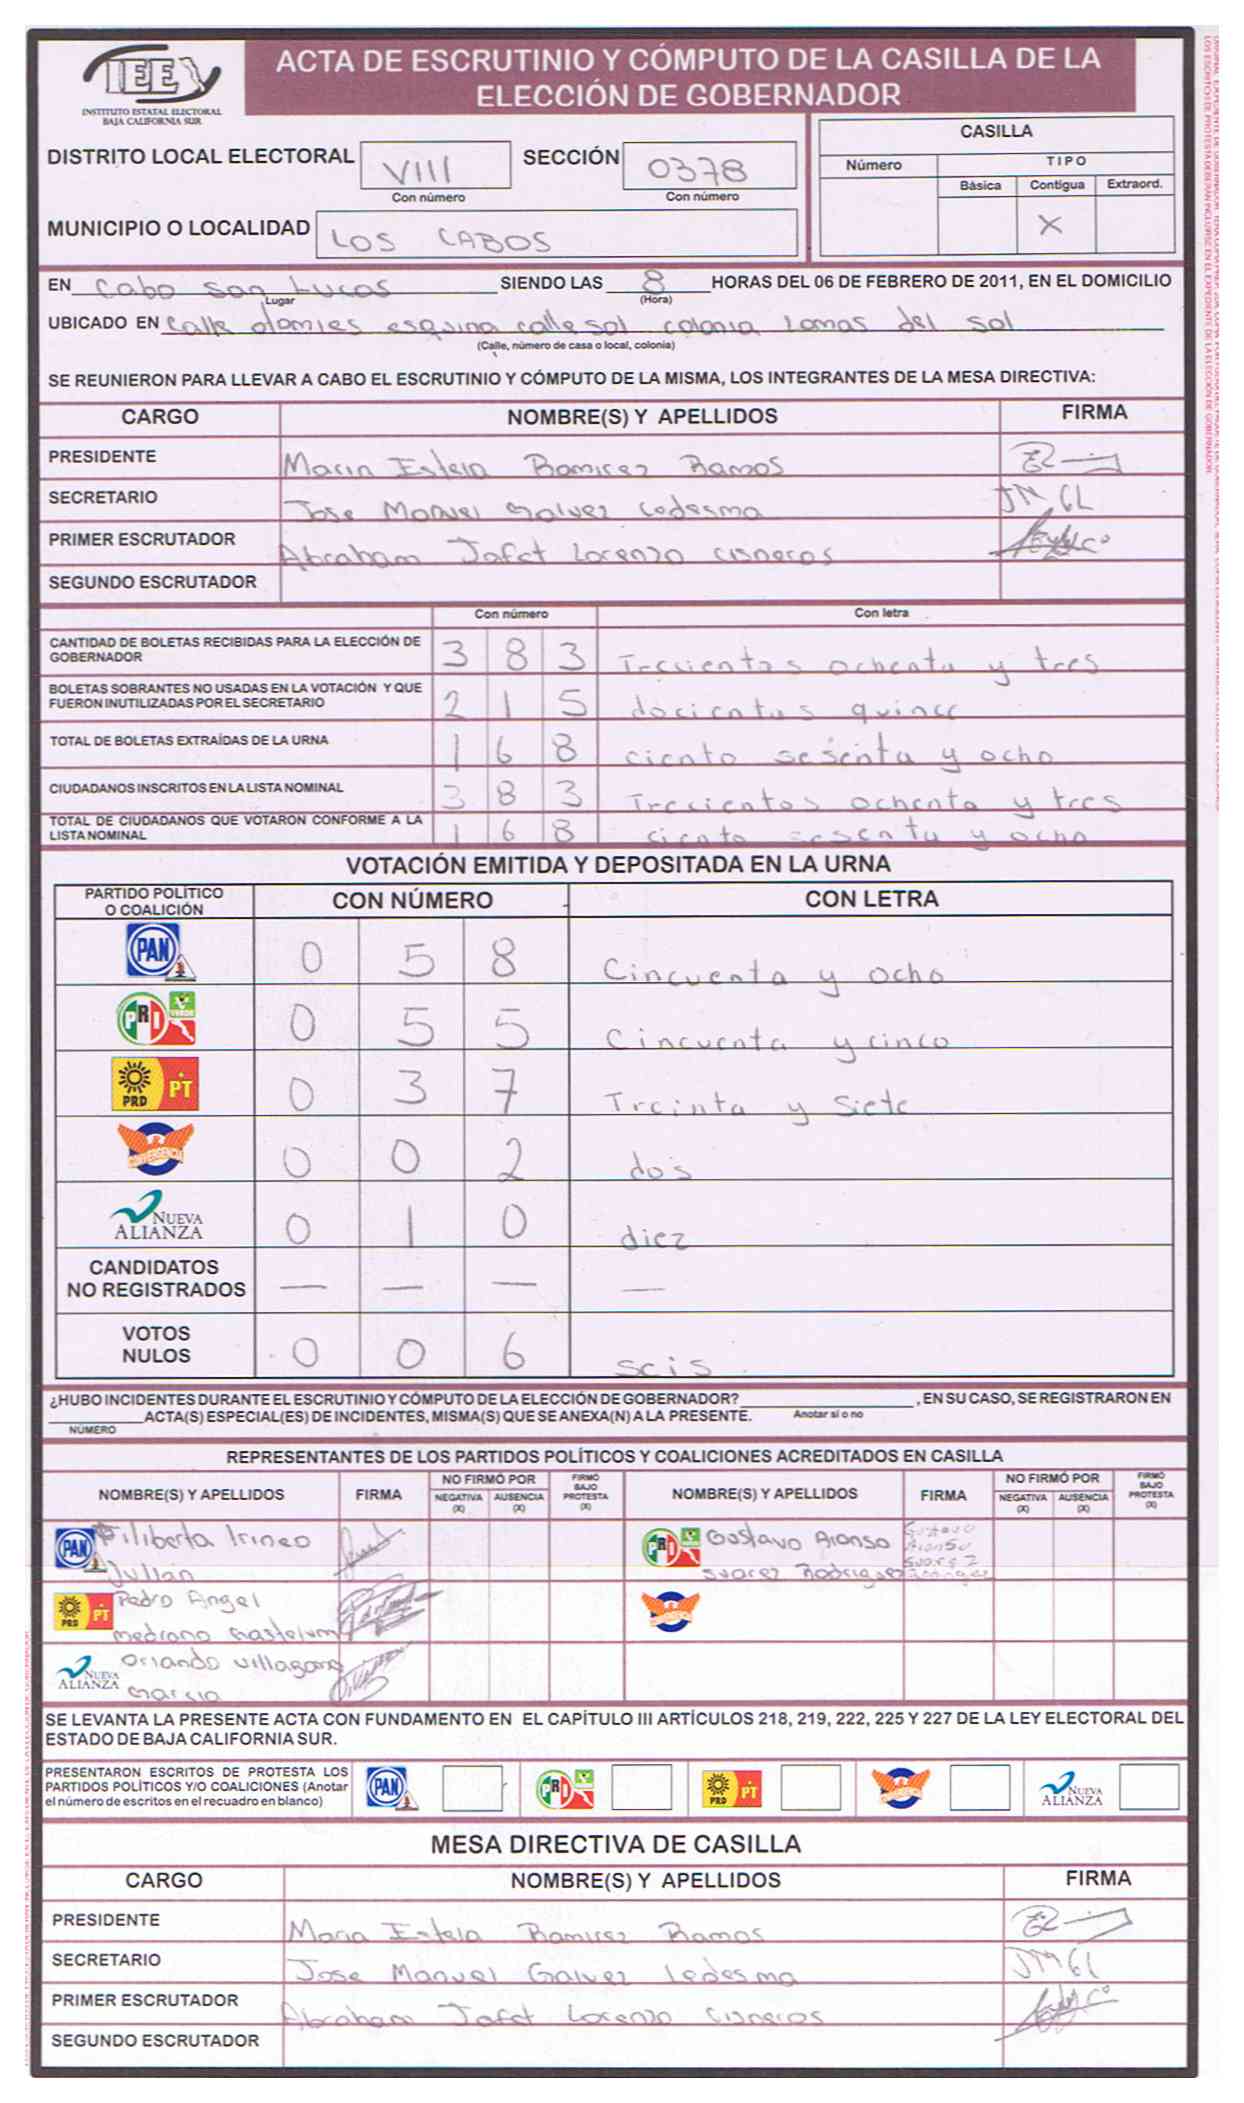 IEE
INSTITUTO ESTATAL ELECTORAL
BAJA CALIFORNIA SUR
ACTA DE ESCRUTINIO Y CÓMPUTO DE LA CASILLA DE LA
ELECCIÓN DE GOBERNADOR
DISTRITO LOCAL ELECTORAL VIII SECCIÓN 0378
Con número Con número
MUNICIPIO O LOCALIDAD LOS CABOS
CASILLA
Número TIPO
Básica Contigua Extraord.
X
EN Cabo San Lucas SIENDO LAS 8 HORAS DEL 06 DE FEBRERO DE 2011, EN EL DOMICILIO
Lugar (Hora)
UBICADO EN calle esquina calle sol colonia Lomas del sol
(Calle, número de casa o local, colonia)
SE REUNIERON PARA LLEVAR A CABO EL ESCRUTINIO Y CÓMPUTO DE LA MISMA, LOS INTEGRANTES DE LA MESA DIRECTIVA:
CARGO NOMBRE(S) Y APELLIDOS FIRMA
PRESIDENTE Maria Estela Ramirez Ramos
SECRETARIO Jose Manuel Galvez Ledesma JMGL
PRIMER ESCRUTADOR Abraham Jafet Lorenzo Cisneros
SEGUNDO ESCRUTADOR
Con número Con letra
CANTIDAD DE BOLETAS RECIBIDAS PARA LA ELECCIÓN DE
GOBERNADOR 3 8 3 Trecientos ochenta y tres
BOLETAS SOBRANTES NO USADAS EN LA VOTACIÓN Y QUE
FUERON INUTILIZADAS POR EL SECRETARIO 2 1 5 docientos quince
TOTAL DE BOLETAS EXTRAÍDAS DE LA URNA 1 6 8 ciento sesenta y ocho
CIUDADANOS INSCRITOS EN LA LISTA NOMINAL 3 8 3 Trecientos ochenta y tres
TOTAL DE CIUDADANOS QUE VOTARON CONFORME A LA
LISTA NOMINAL 1 6 8 ciento sesenta y ocho
VOTACIÓN EMITIDA Y DEPOSITADA EN LA URNA
PARTIDO POLÍTICO
O COALICIÓN CON NÚMERO CON LETRA
PAN 0 5 8 Cincuenta y ocho
PRI VERDE 0 5 5 Cincuenta y cinco
PRD PT 0 3 7 Treinta y siete
CONVERGENCIA 0 0 2 dos
NUEVA
ALIANZA 0 1 0 diez
CANDIDATOS
NO REGISTRADOS — — — —
VOTOS
NULOS 0 0 6 seis
¿HUBO INCIDENTES DURANTE EL ESCRUTINIO Y CÓMPUTO DE LA ELECCIÓN DE GOBERNADOR? , EN SU CASO, SE REGISTRARON EN
ACTA(S) ESPECIAL(ES) DE INCIDENTES, MISMA(S) QUE SE ANEXA(N) A LA PRESENTE. Anotar sí o no
NÚMERO
REPRESENTANTES DE LOS PARTIDOS POLÍTICOS Y COALICIONES ACREDITADOS EN CASILLA
NOMBRE(S) Y APELLIDOS FIRMA NO FIRMÓ POR NEGATIVA (X) AUSENCIA (X) FIRMÓ BAJO PROTESTA (X) NOMBRE(S) Y APELLIDOS FIRMA NO FIRMÓ POR NEGATIVA (X) AUSENCIA (X) FIRMÓ BAJO PROTESTA (X)
PAN Filiberta Irineo
Julián
PRI VERDE Gustavo Alonso
Suarez Rodriguez
Gustavo
Alonso
Suarez
Rodriguez
PRD PT Pedro Angel
medrano Gastelum
CONVERGENCIA
NUEVA
ALIANZA Orlando Villagomez
Garcia
SE LEVANTA LA PRESENTE ACTA CON FUNDAMENTO EN EL CAPÍTULO III ARTÍCULOS 218, 219, 222, 225 Y 227 DE LA LEY ELECTORAL DEL
ESTADO DE BAJA CALIFORNIA SUR.
PRESENTARON ESCRITOS DE PROTESTA LOS
PARTIDOS POLÍTICOS Y/O COALICIONES (Anotar
el número de escritos en el recuadro en blanco)
PAN PRI VERDE PRD PT CONVERGENCIA NUEVA ALIANZA
MESA DIRECTIVA DE CASILLA
CARGO NOMBRE(S) Y APELLIDOS FIRMA
PRESIDENTE Maria Estela Ramirez Ramos
SECRETARIO Jose Manuel Galvez Ledesma JMGL
PRIMER ESCRUTADOR Abraham Jafet Lorenzo Cisneros
SEGUNDO ESCRUTADOR